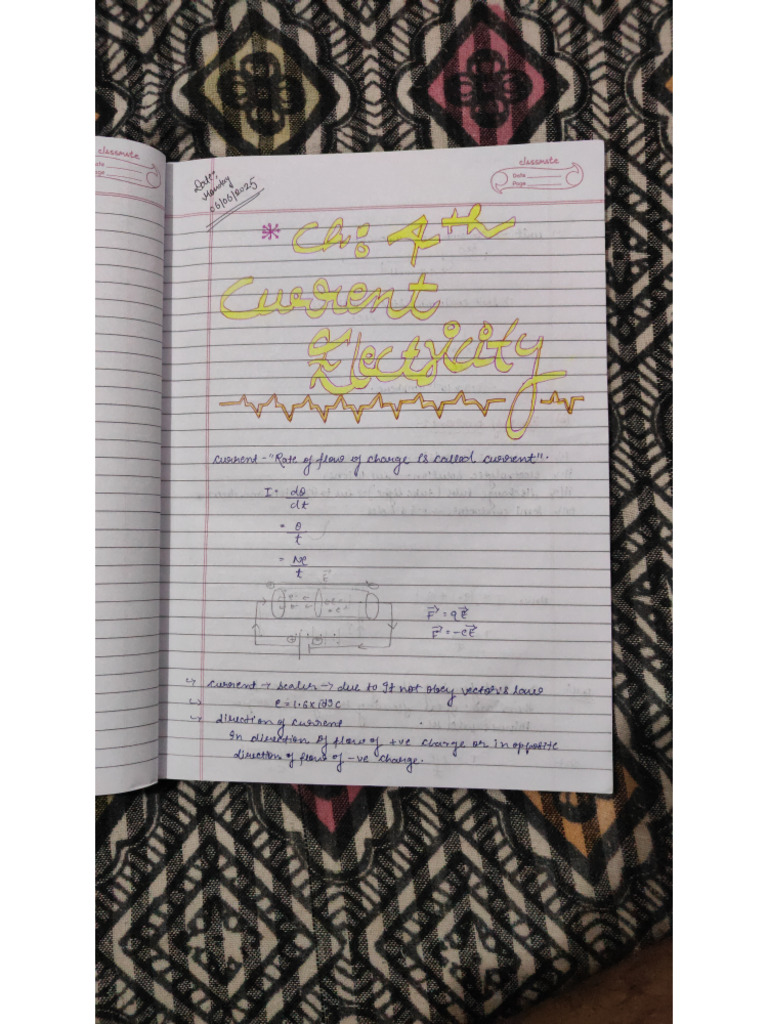 classmate
Date
Page
classmate
Date
Page
Date:
Monday
05/05/2025
* Ch: 4th
Current
Electricity
Current - "Rate of flow of charge is called current".
I = dθ/dt
= θ/t
= ne/t
E
F = qE
F = -eE
↪ Current → scalar → due to It not obey vector's law
↪ e = 1.6x10-19C
↪ direction of current
In direction of flow of +ve charge or in opposite
direction of flow of -ve charge.